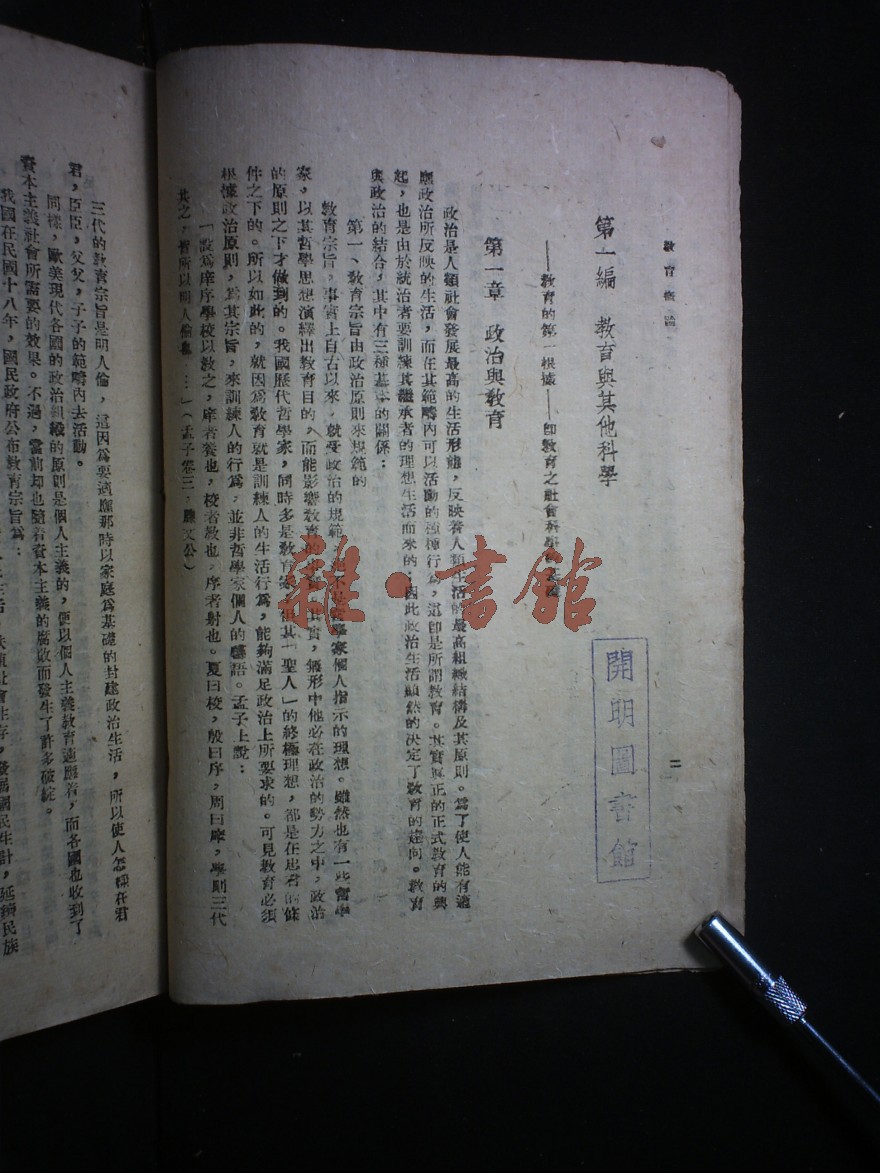 教育概論
二
第一編　教育與其他科學
——教育的第一根據——即教育之社會科學的
第一章　政治與教育
政治是人類社會發展最高的生活形態，反映着人類生活的最高組織結構及其原則。爲了使人能有適
應政治所反映的生活，而在其範疇內可以活動的種種行爲，這即是所謂教育。其實眞正的正式教育的興
起，也是由於統治者要訓練其繼承者的理想生活而來的，因此政治生活顯然的決定了教育的趨向。教育
與政治的結合，其中有三種基本的關係：
第一、教育宗旨由政治原則來規範的
教育宗旨，事實上自古以來，就受政治的規範，他不是哲學家個人指示的理想。雖然也有一些哲學
家，以其哲學思想演繹出教育目的，而能影響教育的，其實，無形中他必在政治的勢力之中，政治
的原則之下才做到的。我國歷代哲學家，同時多是教育家，但其「聖人」的終極理想，都是在忠君的條
件之下的。所以如此的，就因爲教育就是訓練人的生活行爲，能夠滿足政治上所要求的。可見教育必須
根據政治原則，爲其宗旨，來訓練人的行爲，並非哲學家個人的囈語。孟子上說：
「設爲庠序學校以教之，庠者養也，校者教也，序者射也。夏曰校，殷曰序，周曰庠，學則三代
共之，皆所以明人倫也…」（孟子卷三，滕文公）
三代的教育宗旨是明人倫，這因爲要適應那時以家庭爲基礎的封建政治生活，所以使人怎樣在君
君，臣臣，父父，子子的範疇內去活動。
同樣，歐美現代各國的政治組織的原則是個人主義的，便以個人主義教育適應着，而各國也收到了
資本主義社會所需要的效果。不過，當前却也隨着資本主義的腐敗而發生了許多破綻。
我國在民國十八年，國民政府公布教育宗旨爲：
生活，扶植社會生存，發展國民生計，延續民族
開明圖書館
雜·書館